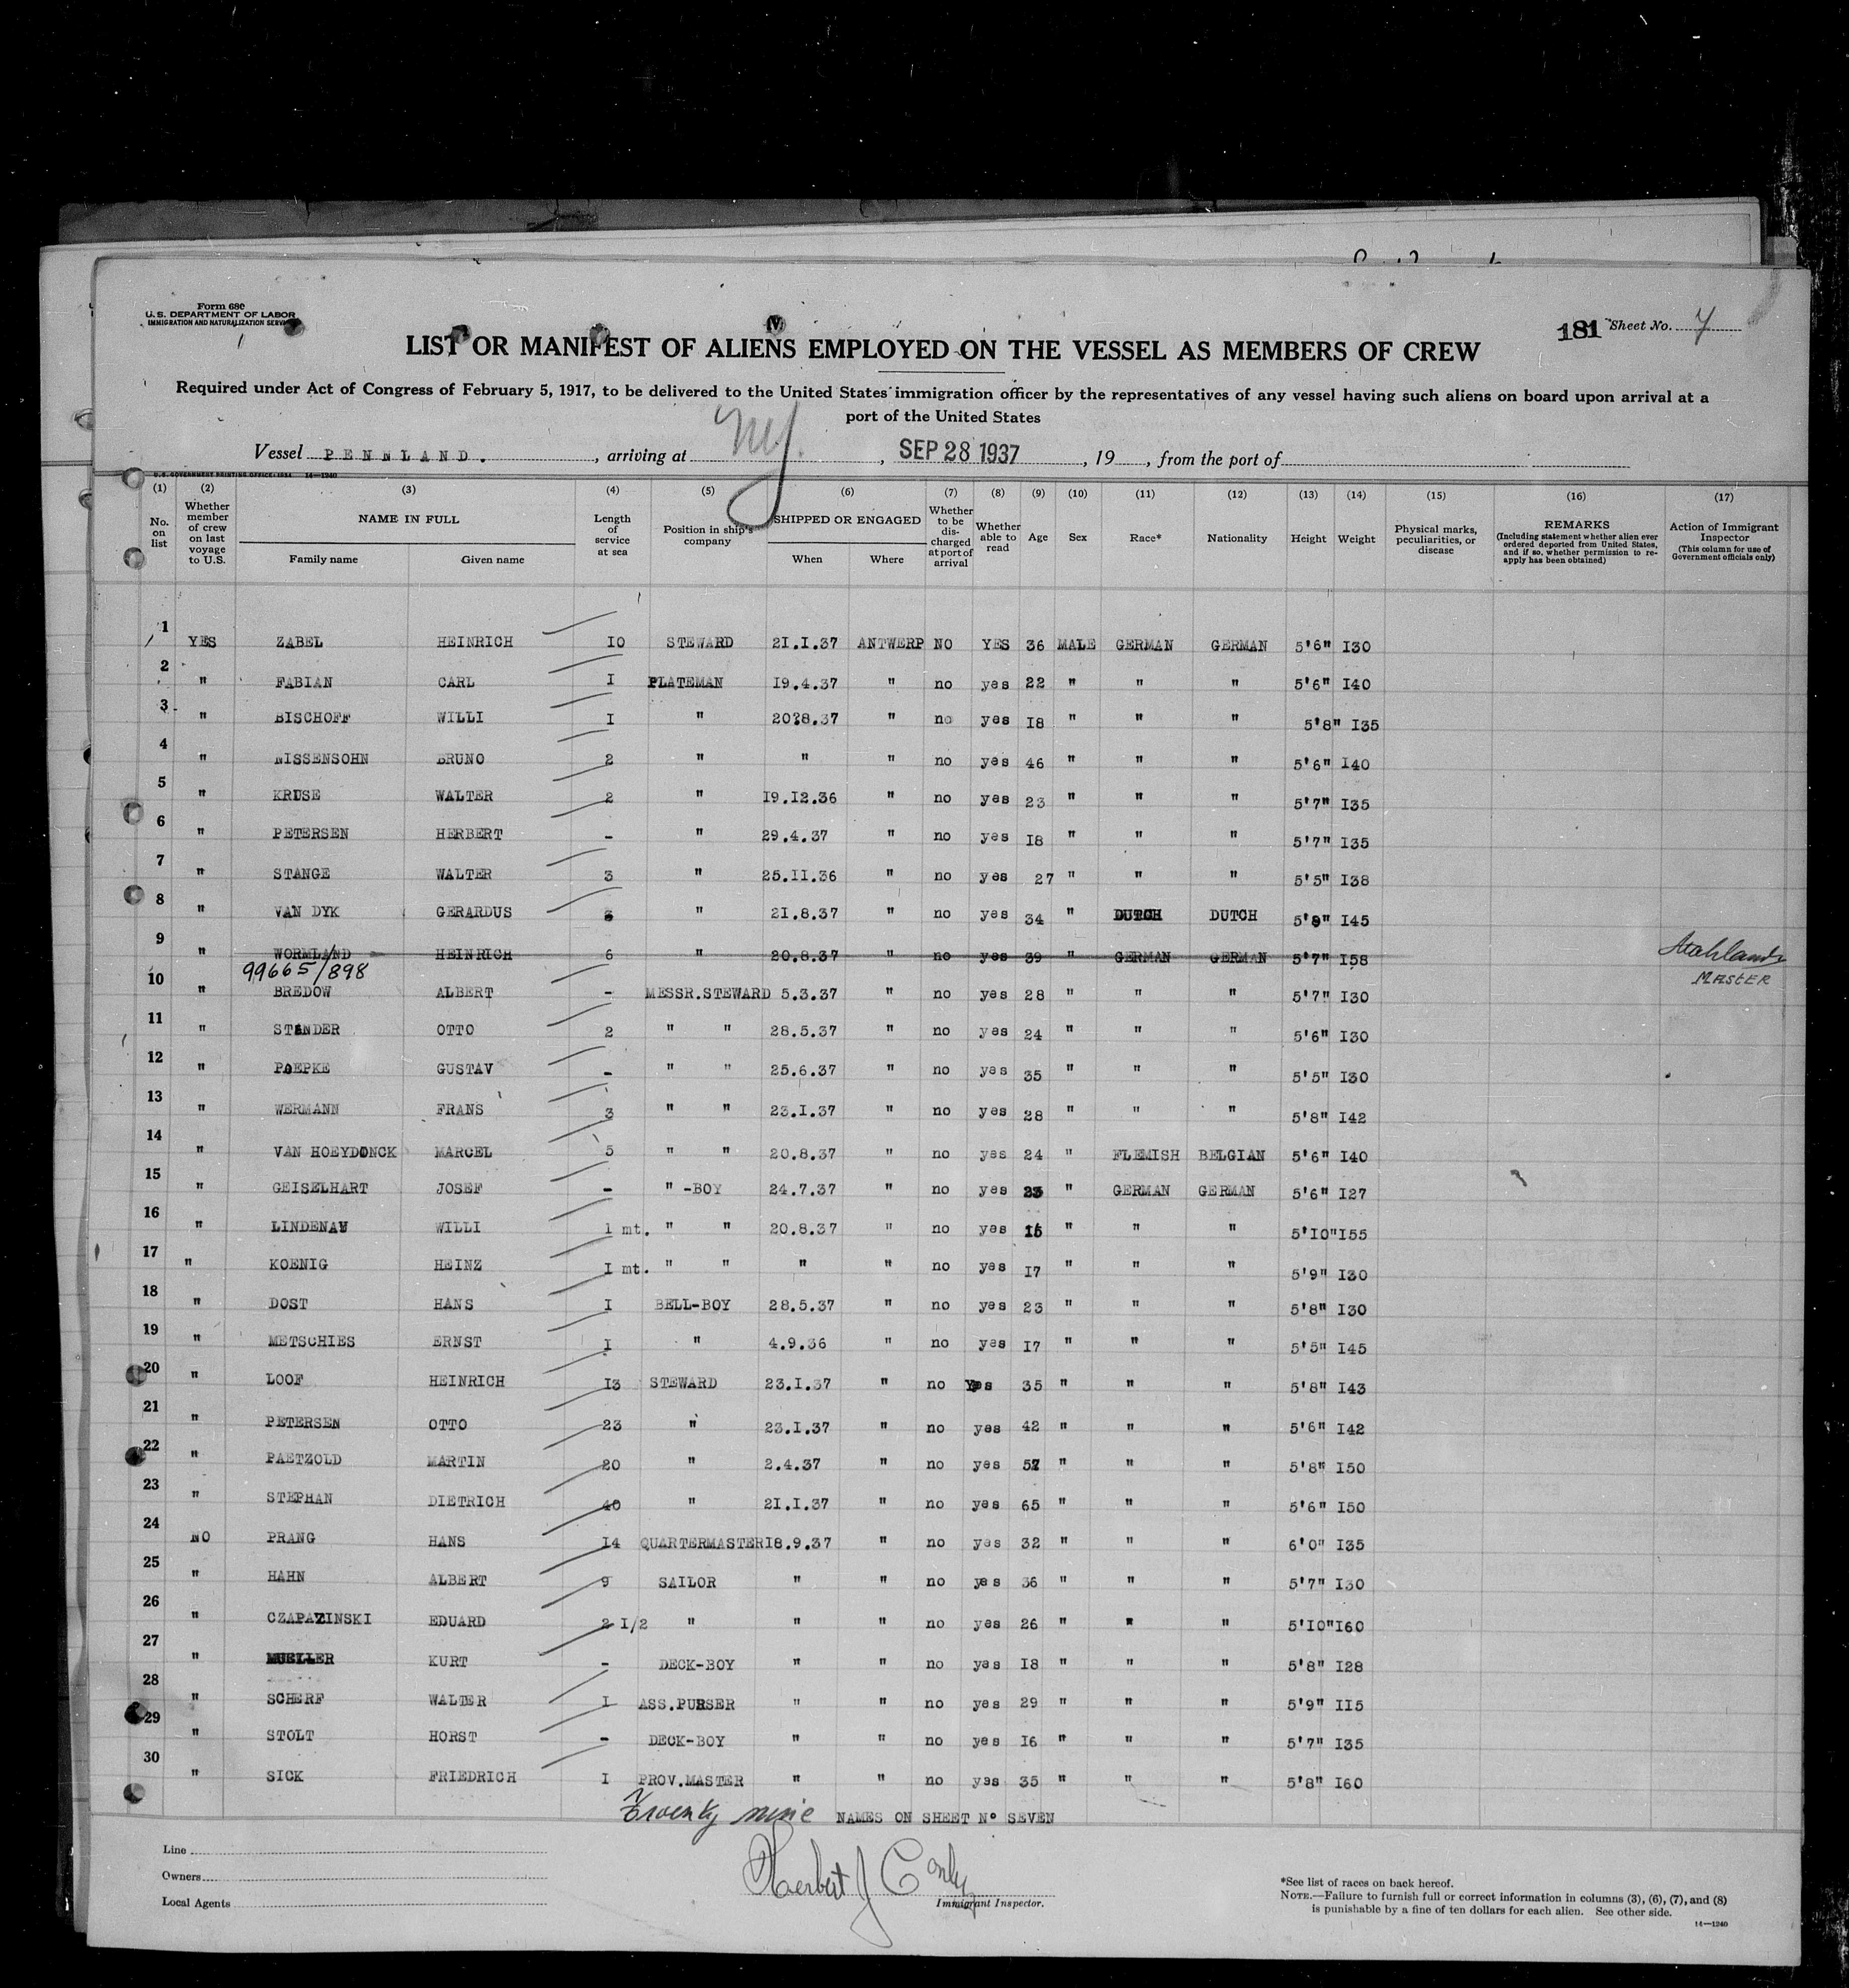 Form 680
U. S. DEPARTMENT OF LABOR
IMMIGRATION AND NATURALIZATION SERVICE
181 Sheet No. 7
LIST OR MANIFEST OF ALIENS EMPLOYED ON THE VESSEL AS MEMBERS OF CREW
Required under Act of Congress of February 5, 1917, to be delivered to the United States immigration officer by the representatives of any vessel having such aliens on board upon arrival at a
port of the United States
Vessel PENNLAND. , arriving at NY. , SEP 28 1937 , 19 , from the port of
U. S. GOVERNMENT PRINTING OFFICE: 1934 14—1240
(1) (2) (3) (4) (5) (6) (7) (8) (9) (10) (11) (12) (13) (14) (15) (16) (17)
No. on list Whether member of crew on last voyage to U.S. NAME IN FULL Family name Given name Length of service at sea Position in ship's company SHIPPED OR ENGAGED When Where Whether to be discharged at port of arrival Whether able to read Age Sex Race* Nationality Height Weight Physical marks, peculiarities, or disease REMARKS (Including statement whether alien ever ordered deported from United States, and if so, whether permission to re-apply has been obtained) Action of Immigrant Inspector (This column for use of Government officials only)
1 YES ZABEL HEINRICH IO STEWARD 2I.I.37 ANTWERP NO YES 36 MALE GERMAN GERMAN 5'6" I30
2 " FABIAN CARL I PLATEMAN I9.4.37 " no yes 22 " " " 5'6" I40
3 " BISCHOFF WILLI I " 20?8.37 " no yes I8 " " " 5'8" I35
4 " NISSENSOHN BRUNO 2 " " " no yes 46 " " " 5'6" I40
5 " KRUSE WALTER 2 " I9.I2.36 " no yes 23 " " " 5'7" I35
6 " PETERSEN HERBERT - " 29.4.37 " no yes I8 " " " 5'7" I35
7 " STANGE WALTER 3 " 25.II.36 " no yes 27 " " " 5'5" I38
8 " VAN DYK GERARDUS " 2I.8.37 " no yes 34 " DUTCH DUTCH 5'9" I45
9 " WORMLAND HEINRICH 6 " 20.8.37 " no yes 39 " GERMAN GERMAN 5'7" I58
99665/898 MASTER
10 " BREDOW ALBERT - MESSR.STEWARD 5.3.37 " no yes 28 " " " 5'7" I30
11 " STANDER OTTO 2 " " 28.5.37 " no yes 24 " " " 5'6" I30
12 " POEPKE GUSTAV - " " 25.6.37 " no yes 35 " " " 5'5" I30
13 " WERMANN FRANS 3 " " 23.I.37 " no yes 28 " " " 5'8" I42
14 " VAN HOEYDONCK MARCEL 5 " " 20.8.37 " no yes 24 " FLEMISH BELGIAN 5'6" I40
15 " GEISELHART JOSEF - " -BOY 24.7.37 " no yes 23 " GERMAN GERMAN 5'6" I27
16 " LINDENAU WILLI 1 mt. " " 20.8.37 " no yes 16 " " " 5'IO" I55
17 " KOENIG HEINZ I mt. " " " " no yes I7 " " " 5'9" I30
18 " DOST HANS I BELL-BOY 28.5.37 " no yes 23 " " " 5'8" I30
19 " METSCHIES ERNST I " 4.9.36 " no yes I7 " " " 5'5" I45
20 " LOOF HEINRICH I3 STEWARD 23.I.37 " no Yes 35 " " " 5'8" I43
21 " PETERSEN OTTO 23 " 23.I.37 " no yes 42 " " " 5'6" I42
22 " PAETZOLD MARTIN 20 " 2.4.37 " no yes 52 " " " 5'8" I50
23 " STEPHAN DIETRICH 40 " 2I.I.37 " no yes 65 " " " 5'6" I50
24 NO PRANG HANS I4 QUARTERMASTER I8.9.37 " no yes 32 " " " 6'0" I35
25 " HAHN ALBERT 9 SAILOR " " no yes 36 " " " 5'7" I30
26 " CZAPAZINSKI EDUARD 2 I/2 " " " no yes 26 " " " 5'IO" I60
27 " MUELLER KURT - DECK-BOY " " no yes I8 " " " 5'8" I28
28 " SCHERF WALTER I ASS.PURSER " " no yes 29 " " " 5'9" II5
29 " STOLT HORST - DECK-BOY " " no yes I6 " " " 5'7" I35
30 " SICK FRIEDRICH I PROV.MASTER " " no yes 35 " " " 5'8" I60
Twenty nine NAMES ON SHEET No SEVEN
Line
Owners
Local Agents
Herbert J
Immigrant Inspector.
*See list of races on back hereof.
NOTE.—Failure to furnish full or correct information in columns (3), (6), (7), and (8)
is punishable by a fine of ten dollars for each alien. See other side.
14—1240